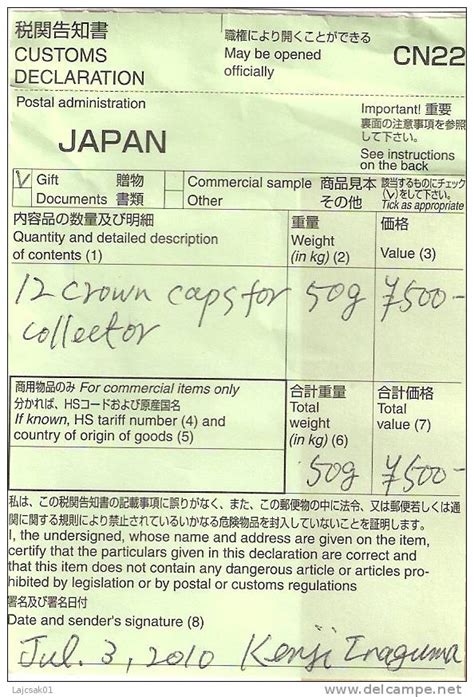 税関告知書
CUSTOMS
DECLARATION
職権により開くことができる
May be opened
officially
CN22
Postal administration
JAPAN
Important! 重要
裏面の注意事項を参照
して下さい。
See instructions
on the back
V Gift 贈物
Documents 書類
Commercial sample 商品見本
Other その他
該当するものにチェック
(√)をして下さい。
Tick as appropriate
内容品の数量及び明細
Quantity and detailed description
of contents (1)
重量
Weight
(in kg) (2)
価格
Value (3)
12 crown caps for 50g ¥500-
collector
商用物品のみ For commercial items only
分かれば、HSコードおよび原産国名
If known, HS tariff number (4) and
country of origin of goods (5)
合計重量
Total
weight
(in kg) (6)
合計価格
Total
value (7)
50g ¥500-
私は、この税関告知書の記載事項に誤りがなく、また、この郵便物の中に法令、又は郵便若しくは通
関に関する規則により禁止されているいかなる危険物品を封入していないことを証明します。
I, the undersigned, whose name and address are given on the item,
certify that the particulars given in this declaration are correct and
that this item does not contain any dangerous article or articles pro-
hibited by legislation or by postal or customs regulations
署名及び署名日付
Date and sender's signature (8)
Jul. 3, 2010 Kenji Inaguma
Lajcsak01
www.delcampe.net